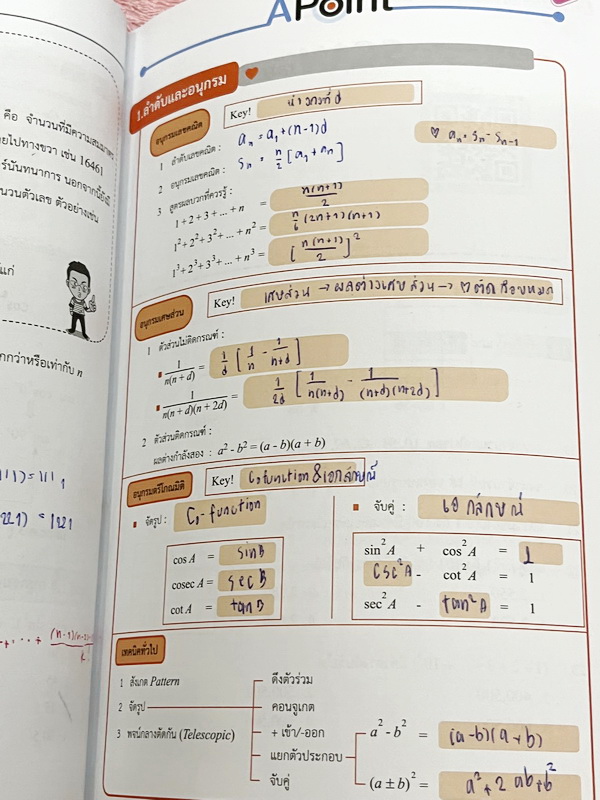 APoint
คือ จำนวนที่มีความสมมาตร
ายไปทางขวา เช่น 16461
ร์นันทนาการ นอกจากนี้ยังมี
นวนตัวเลข ตัวอย่างเช่น
แก่
กกว่าหรือเท่ากับ n
1.ลำดับและอนุกรม
อนุกรมเลขคณิต
Key! หา a₁ และ d
1 ลำดับเลขคณิต : aₙ = a₁ + (n-1)d
♡ aₙ = Sₙ - Sₙ₋₁
2 อนุกรมเลขคณิต : Sₙ = n/2 [a₁ + aₙ]
3 สูตรผลบวกที่ควรรู้ :
1 + 2 + 3 + ... + n = n(n+1)/2
1² + 2² + 3² + ... + n² = n/6 (2n+1)(n+1)
1³ + 2³ + 3³ + ... + n³ = [n(n+1)/2]²
อนุกรมเศษส่วน
Key! เศษส่วน → ผลต่างเศษส่วน → ♡ ตัดเกือบหมด
1 ตัวส่วนไม่ติดกรณฑ์ :
▪ 1/n(n + d) = 1/d [1/n - 1/n+d]
▪ 1/n(n + d)(n + 2d) = 1/2d [1/n(n+d) - 1/(n+d)(n+2d)]
2 ตัวส่วนติดกรณฑ์ :
ผลต่างกำลังสอง : a² - b² = (a - b)(a + b)
อนุกรมตรีโกณมิติ
Key! Cofunction & เอกลักษณ์
▪ จัดรูป : Co-function
▪ จับคู่ : เอกลักษณ์
cos A = sin B
cosec A = sec B
cot A = tan B
sin²A + cos²A = 1
csc²A - cot²A = 1
sec²A - tan²A = 1
เทคนิคทั่วไป
1 สังเกต Pattern
2 จัดรูป
3 พจน์กลางตัดกัน (Telescopic)
ดึงตัวร่วม
คอนจูเกต
+ เข้า/-ออก
แยกตัวประกอบ
จับคู่
a² - b² = (a-b)(a+b)
(a ± b)² = a² ± 2ab + b²